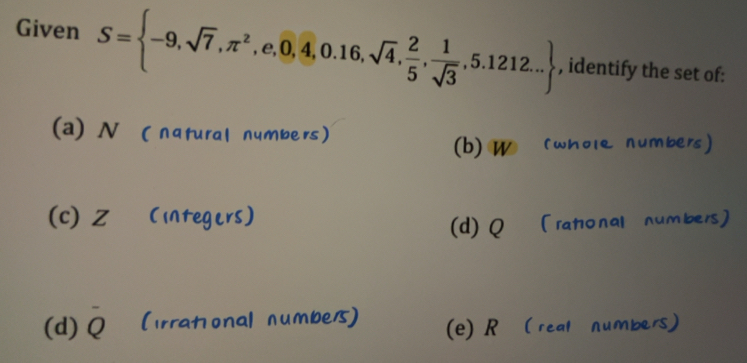 Given S = {−9, √7, π², e, 0, 4, 0.16, √4, 2/5, 1/√3, 5.1212...}, identify the set of:
(a) N (natural numbers)
(b) W (whole numbers)
(c) Z (integers)
(d) Q (rational numbers)
(d) Q̄ (irrational numbers)
(e) R (real numbers)